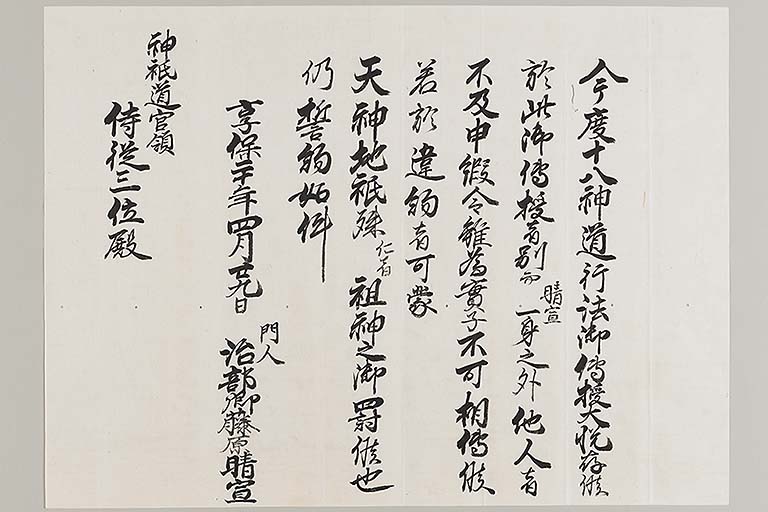 今度十八神道行法御傳授大悦存候
於此御傳授者別而晴宣一身之外他人者
不及申縦令雖為實子不可相傳候
若於違約者可蒙
天神地祇殊仁者祖神之御罸候也
仍誓約如件
享保二十年四月廿九日
門人
治部卿藤原晴宣
神祇道官領
侍従三位殿